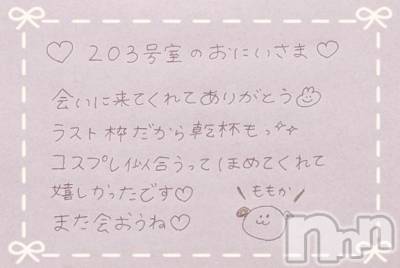 ♡ 203号室のおにいさま ♡
会いに来てくれてありがとう
ラスト枠だから乾杯もっ✧✧
コスプレ似合うってほめてくれて
嬉しかったです♡
また会おうね♡
\ ももか /
nnn